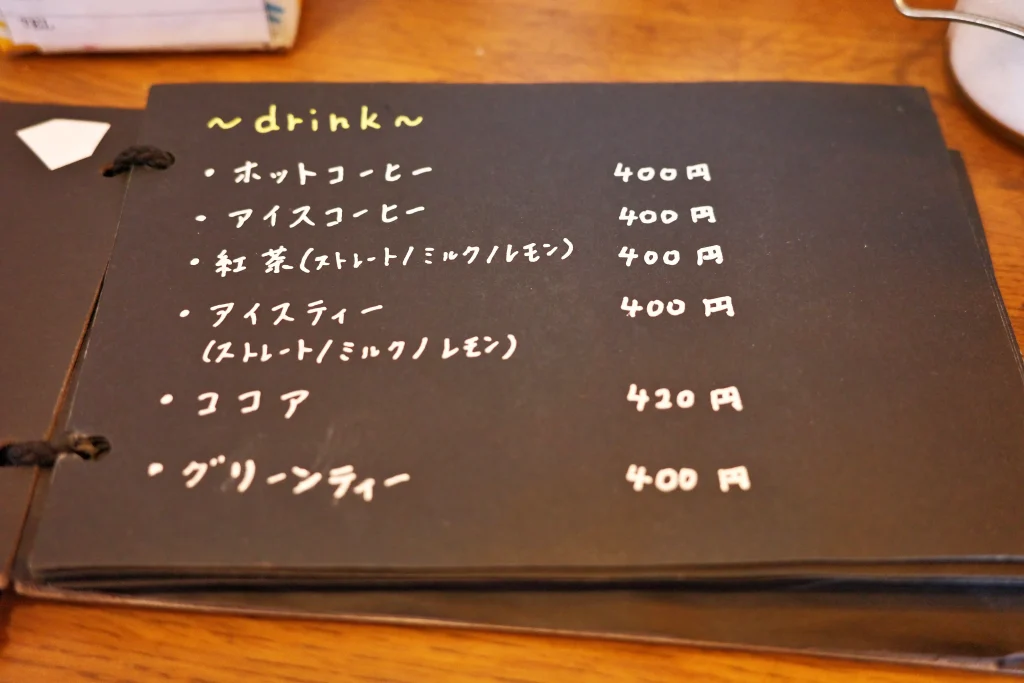 TEL
~drink~
・ホットコーヒー 400円
・アイスコーヒー 400円
・紅茶(ストレート/ミルク/レモン) 400円
・アイスティー 400円
(ストレート/ミルク/レモン)
・ココア 420円
・グリーンティー 400円